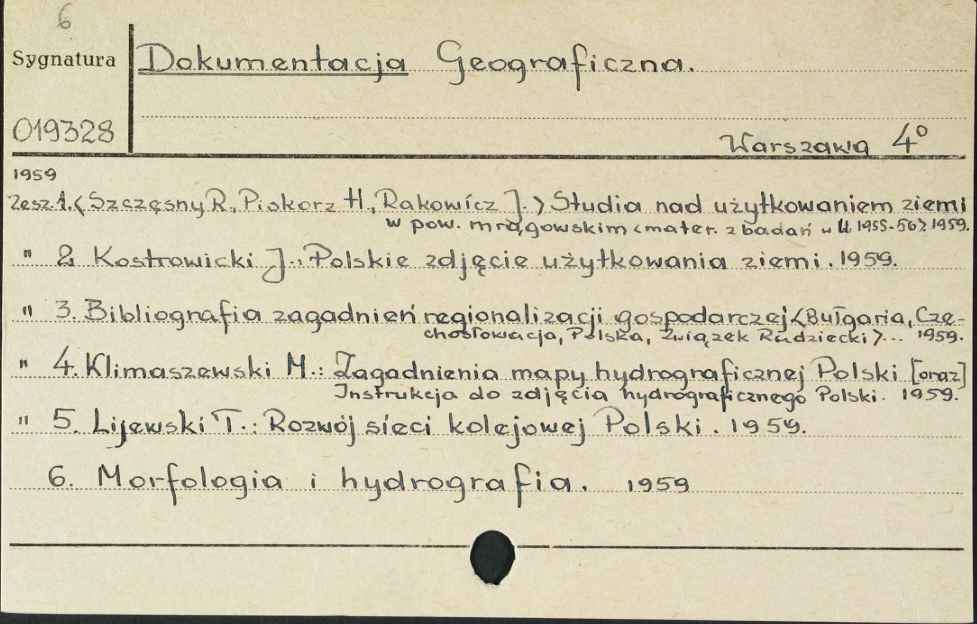 6
Sygnatura
Dokumentacja Geograficzna.
019328
Warszawa 4°
1959
Zesz. 1. <Szczęsny R., Piskorz H., Rakowicz J.> Studia nad użytkowaniem ziemi
w pow. mrągowskim <mater. z badań w 1955-56> 1959.
" 2 Kostrowicki J.: Polskie zdjęcie użytkowania ziemi. 1959.
" 3. Bibliografia zagadnień regionalizacji gospodarczej <Bułgaria, Cze-
chosłowacja, Polska, Związek Radziecki>... 1959.
" 4. Klimaszewski M.: Zagadnienia mapy hydrograficznej Polski [oraz]
Instrukcja do zdjęcia hydrograficznego Polski. 1959.
" 5. Lijewski T.: Rozwój sieci kolejowej Polski. 1959.
6. Morfologia i hydrografia. 1959